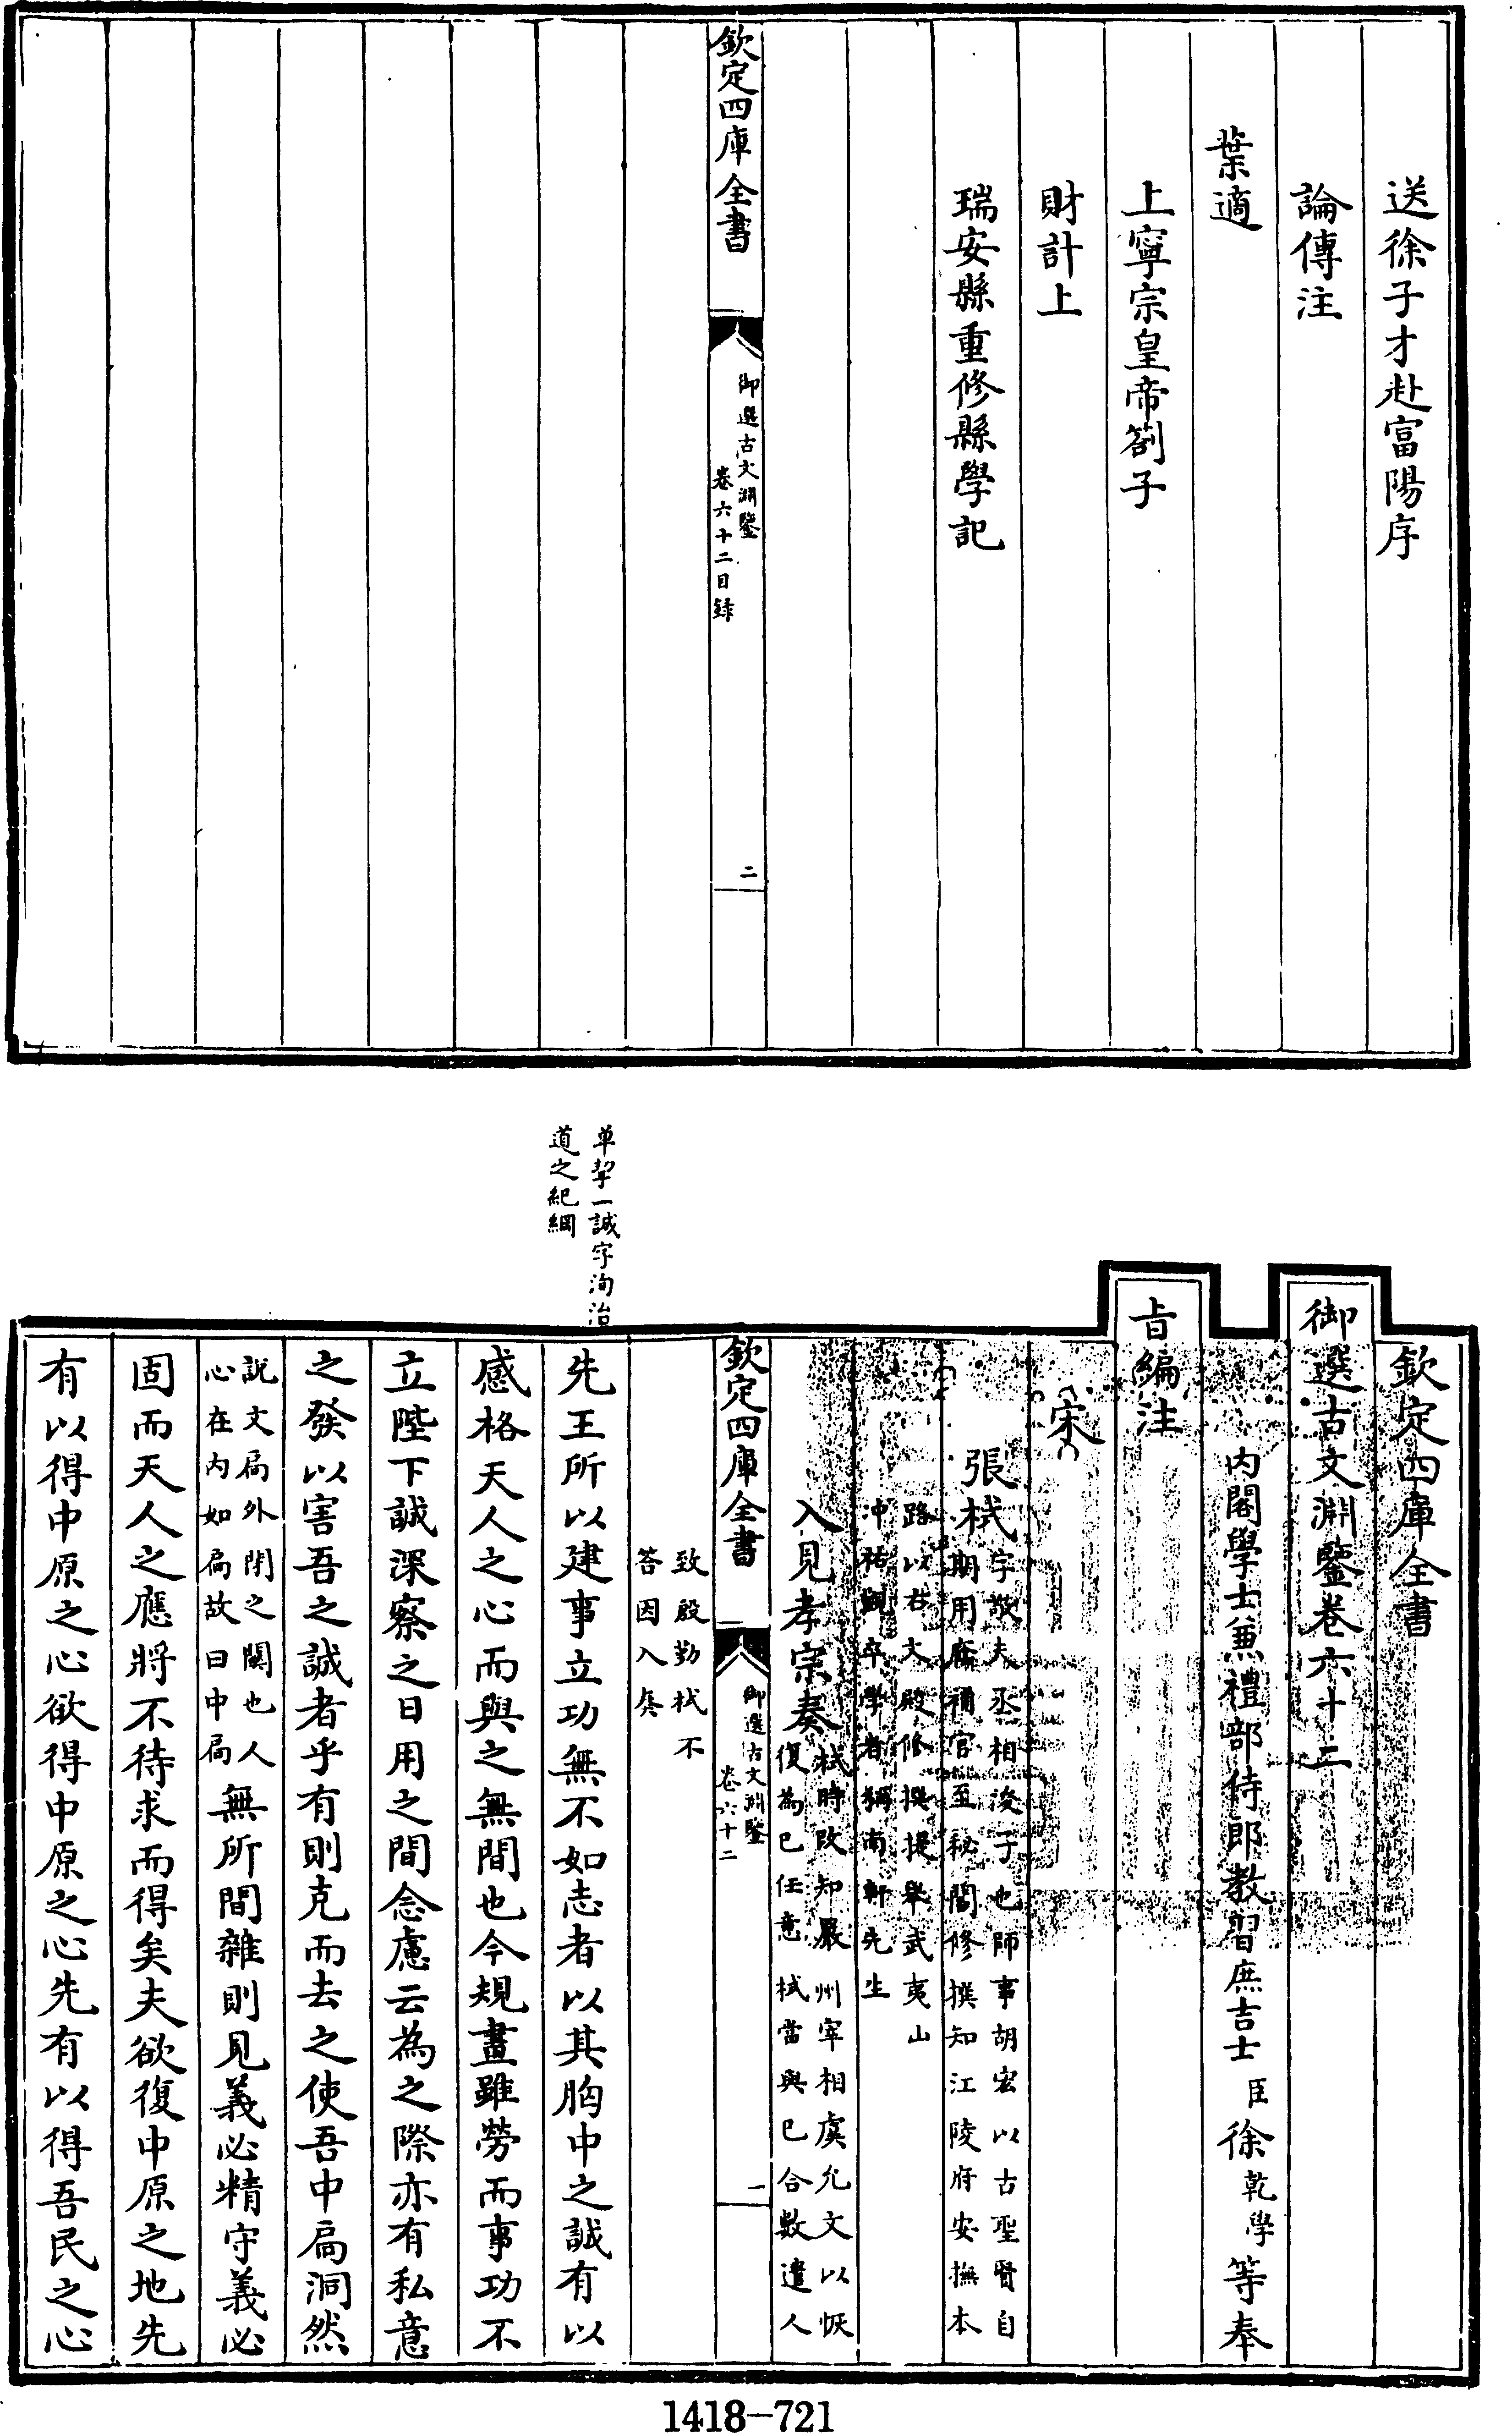 送徐子才赴富陽序
論傳注
葉適
上寧宗皇帝劄子
財計上
瑞安縣重修縣學記
欽定四庫全書
御選古文淵鑒
卷六十二目録
二
欽定四庫全書
御選古文淵鑒卷六十二
内閣學士兼禮部侍郎教習庶吉士臣徐乾學等奉
旨編注
宋
張栻
字敬夫丞相浚子也師事胡宏以古聖賢自
期用廕補官至秘閣修撰知江陵府安撫本
路以右文殿修撰提舉武夷山
冲祐觀卒學者稱南軒先生
入見孝宗奏
栻時改知嚴州宰相虞允文以恢
復為已任意栻當與已合數遣人
欽定四庫全書
御選古文淵鑒
卷六十二
一
致殷勤栻不
答因入奏
單挈一誠字洵治
道之紀綱
先王所以建事立功無不如志者以其胸中之誠有以
感格天人之心而與之無間也今規畫雖勞而事功不
立陛下誠深察之日用之間念慮云為之際亦有私意
之發以害吾之誠者乎有則克而去之使吾中扃洞然
說文扃外閉之關也人
心在内如扃故曰中扃
無所間雜則見義必精守義必
固而天人之應將不待求而得矣夫欲復中原之地先
有以得中原之心欲得中原之心先有以得吾民之心
1418-721